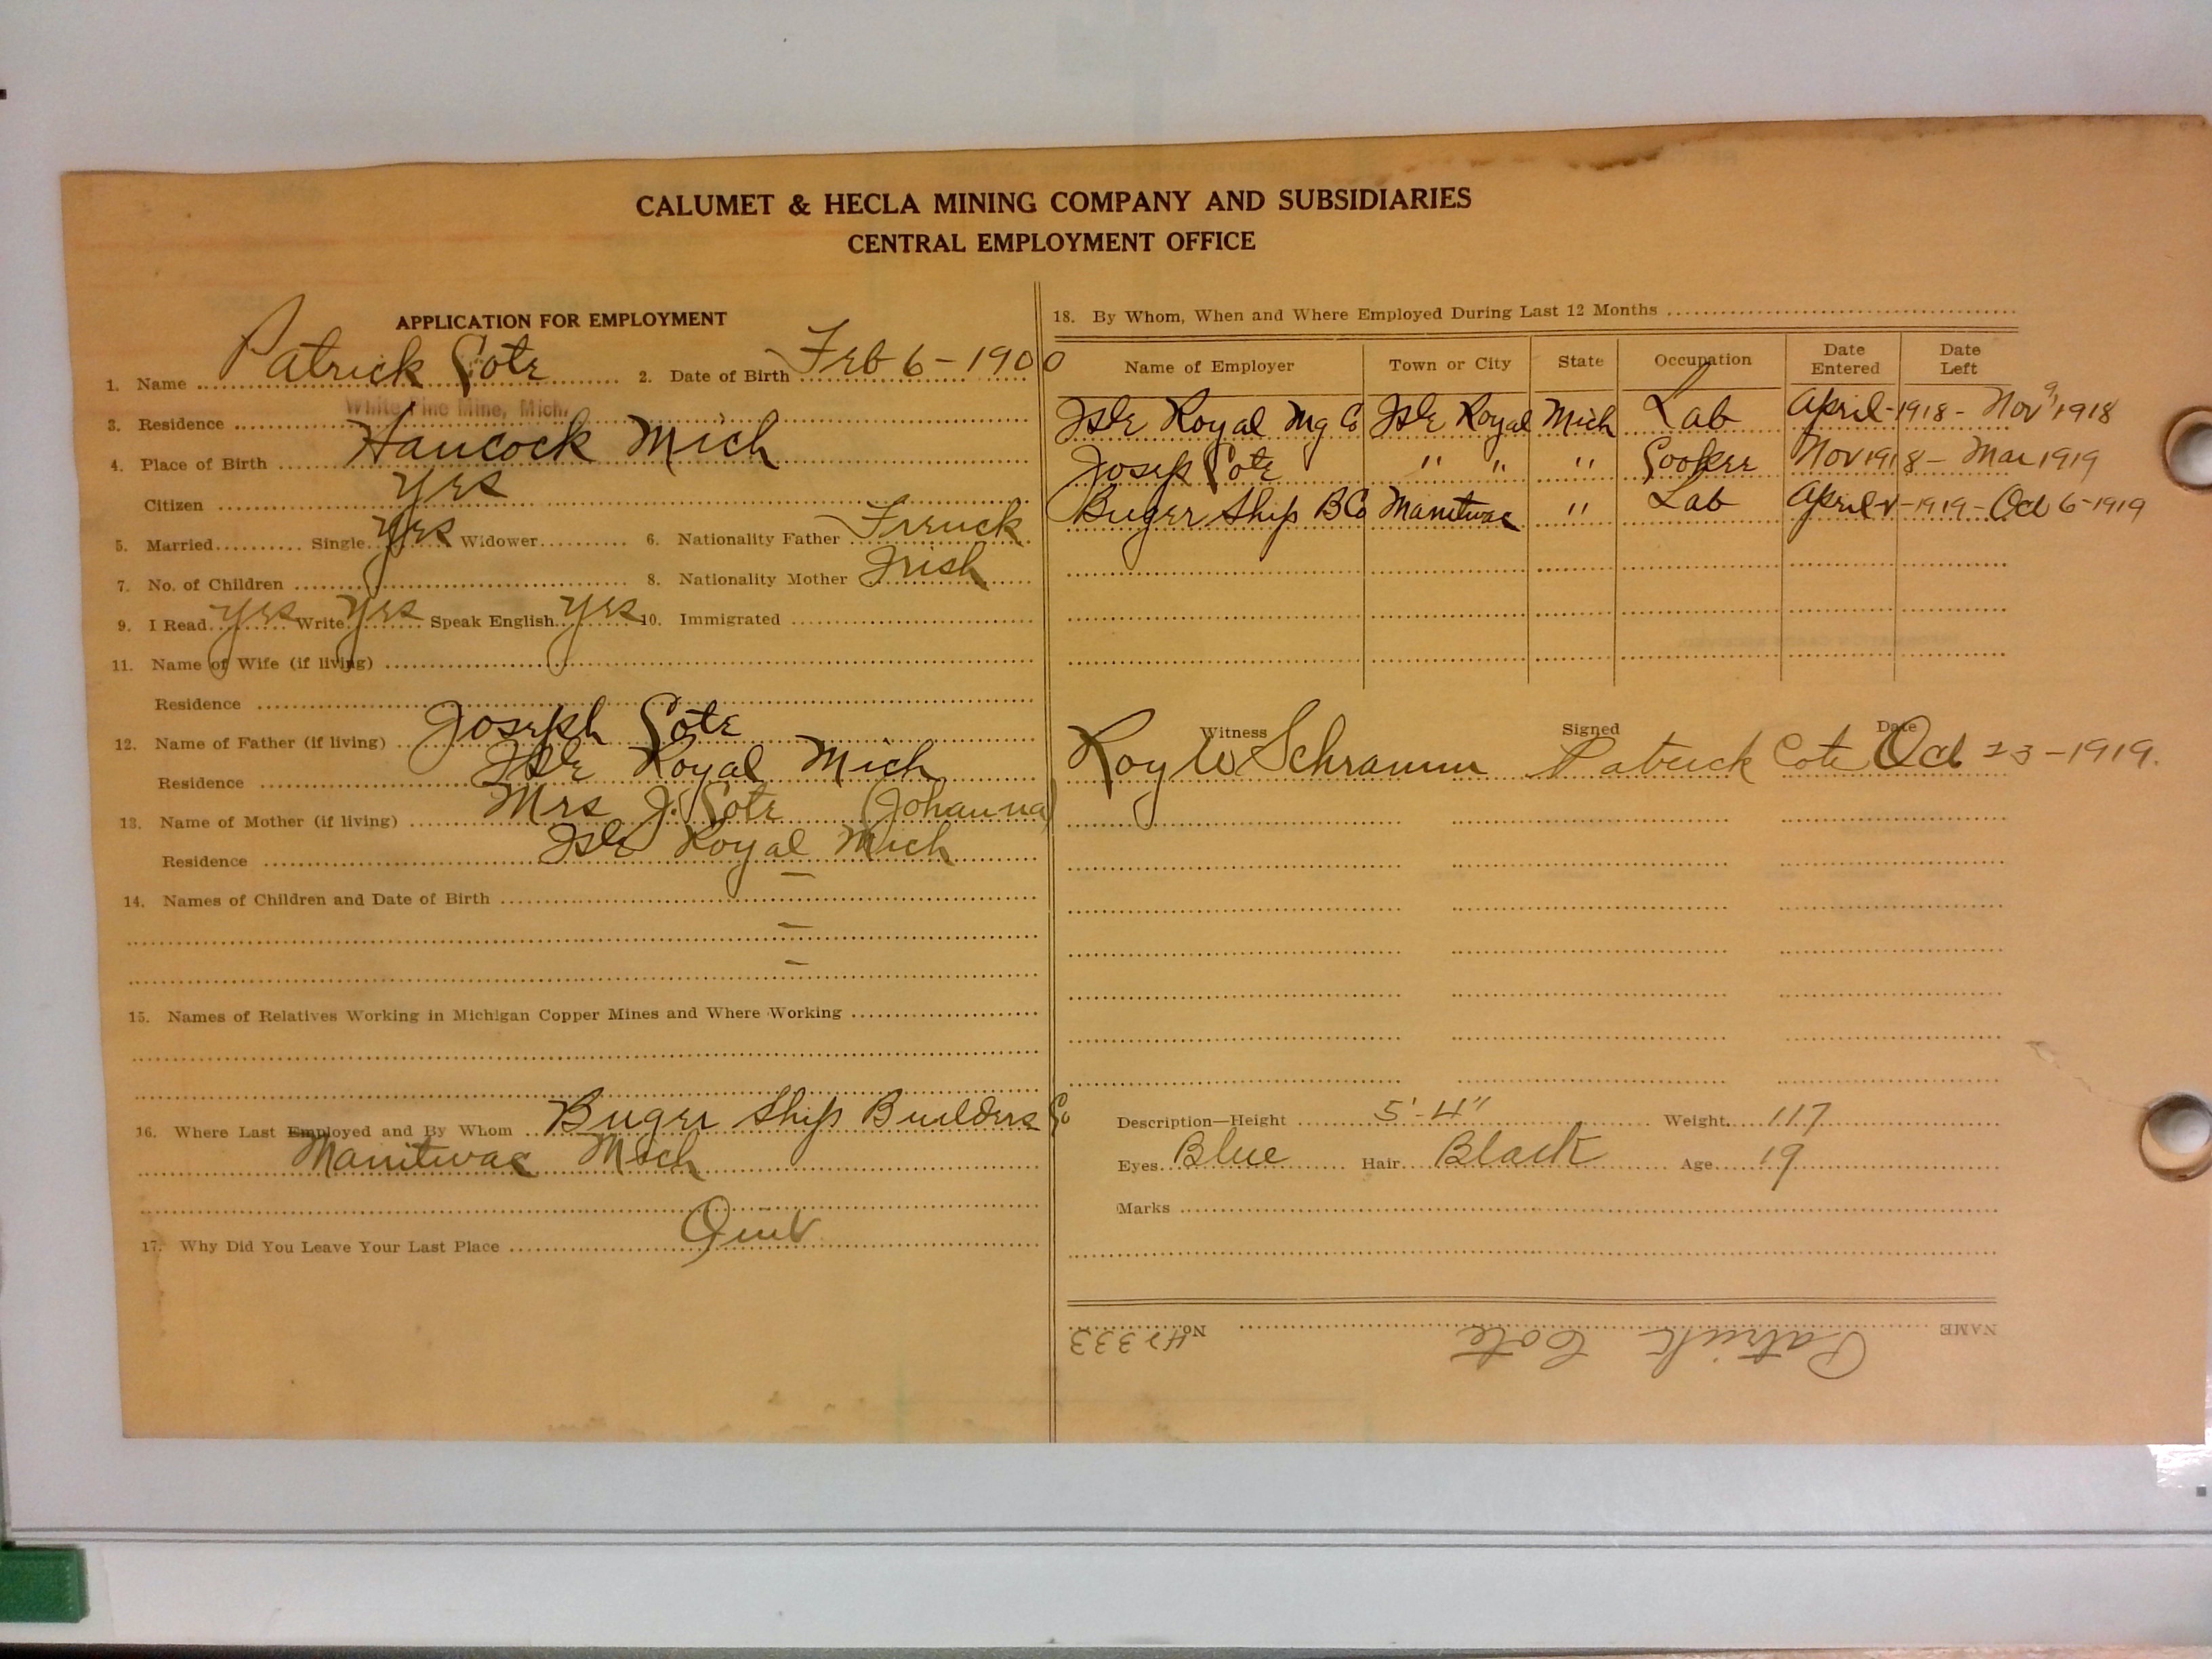 CALUMET & HECLA MINING COMPANY AND SUBSIDIARIES
CENTRAL EMPLOYMENT OFFICE
APPLICATION FOR EMPLOYMENT
1. Name Patrick Cote 2. Date of Birth Feb 6 - 1900
White Pine Mine, Mich.
3. Residence
4. Place of Birth Hancock Mich
Citizen Yes
5. Married Single Yes Widower 6. Nationality Father French
7. No. of Children 8. Nationality Mother Irish
9. I Read Yes Write Yes Speak English Yes 10. Immigrated
11. Name of Wife (if living)
Residence
12. Name of Father (if living) Joseph Cote
Residence Isle Royal Mich
13. Name of Mother (if living) Mrs J. Cote (Johanna)
Residence Isle Royal Mich
14. Names of Children and Date of Birth —
—
—
15. Names of Relatives Working in Michigan Copper Mines and Where Working
16. Where Last Employed and By Whom Buger Ship Builders Co
Manitwac Mich
17. Why Did You Leave Your Last Place Quit
18. By Whom, When and Where Employed During Last 12 Months
Name of Employer Town or City State Occupation Date Entered Date Left
Isle Royal Mg Co Isle Royal Mich Lab April - 1918 - Nov 9 1918
Joseph Cote " " " Cooker Nov 1918 - Mar 1919
Buger Ship B Co Manitwac " Lab April - 1919 - Oct 6 - 1919
Witness Signed Date
Roy W Schramm Patrick Cote Oct 23 - 1919.
Description—Height 5'-4" Weight 117
Eyes Blue Hair Black Age 19
Marks
NAME Patrick Cote No. 42333